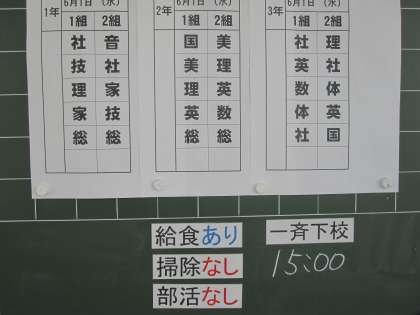 1年 6月1日（水） 2年 6月1日（水） 3年 6月1日（水）
1組 2組 1組 2組 1組 2組
社 音 国 美 社 理
技 社 美 理 英 社
理 家 理 英 数 体
家 技 英 数 体 英
総 総 総 総 社 国
給食あり 一斉下校
掃除なし 15:00
部活なし